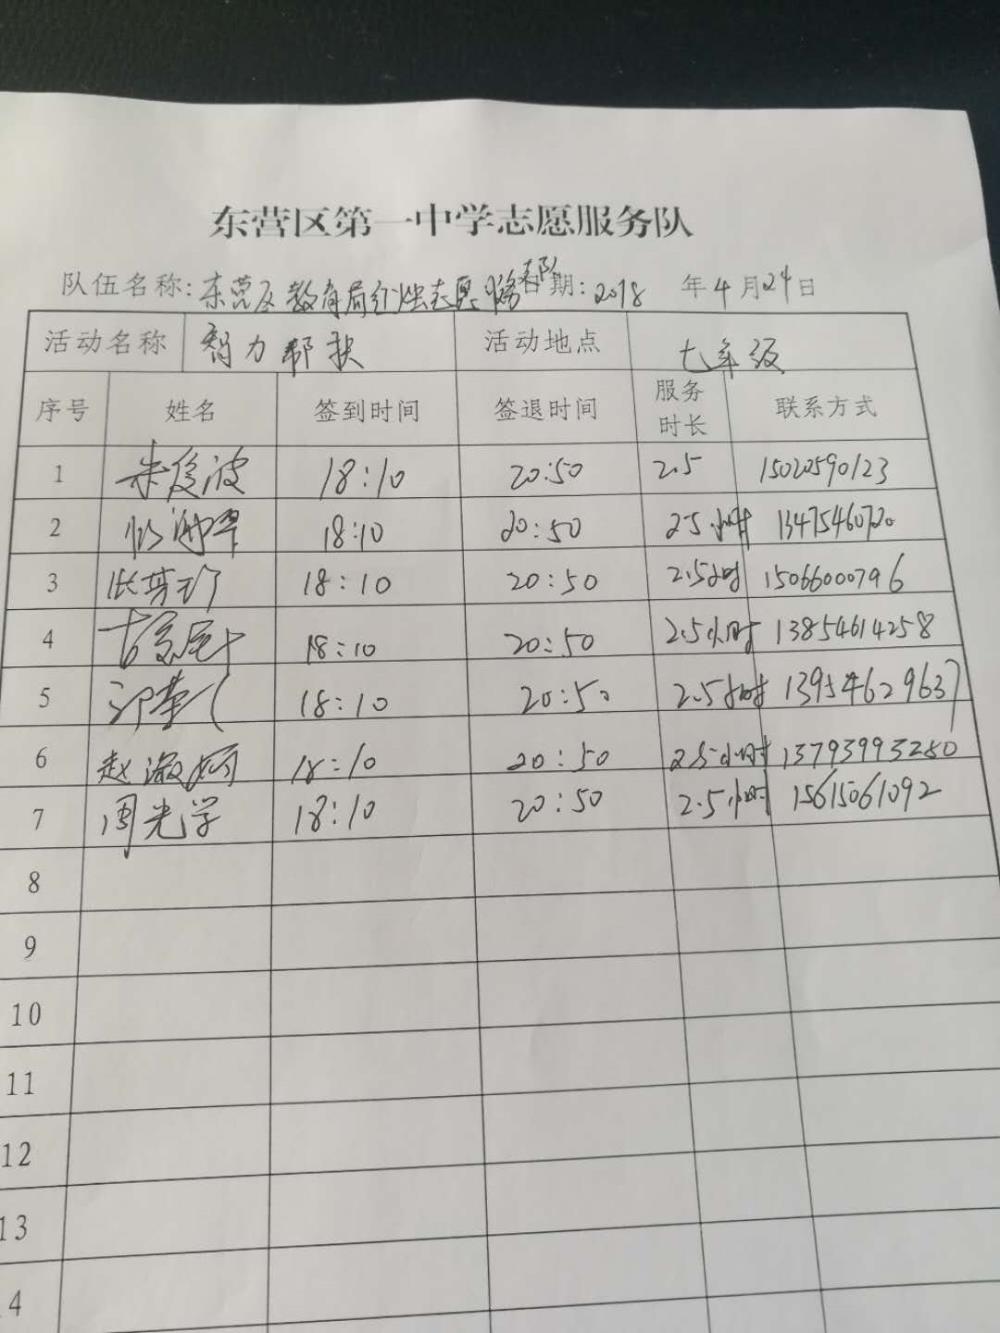 东营区第一中学志愿服务队
队伍名称: 东营区教育局红烛志愿服务队 日期: 2018 年 4 月 24 日
活动名称 智力帮扶 活动地点 七年级
序号 姓名 签到时间 签退时间 服务时长 联系方式
1 朱俊波 18:10 20:50 2.5 15020590123
2 18:10 20:50 2.5小时 13475460720
3 18:10 20:50 2.5小时 15066000796
4 18:10 20:50 2.5小时 13854614258
5 18:10 20:50 2.5小时 13954629637
6 赵淑娟 18:10 20:50 2.5小时 13793993280
7 周光学 18:10 20:50 2.5小时 15615061092
8
9
10
11
12
13
14